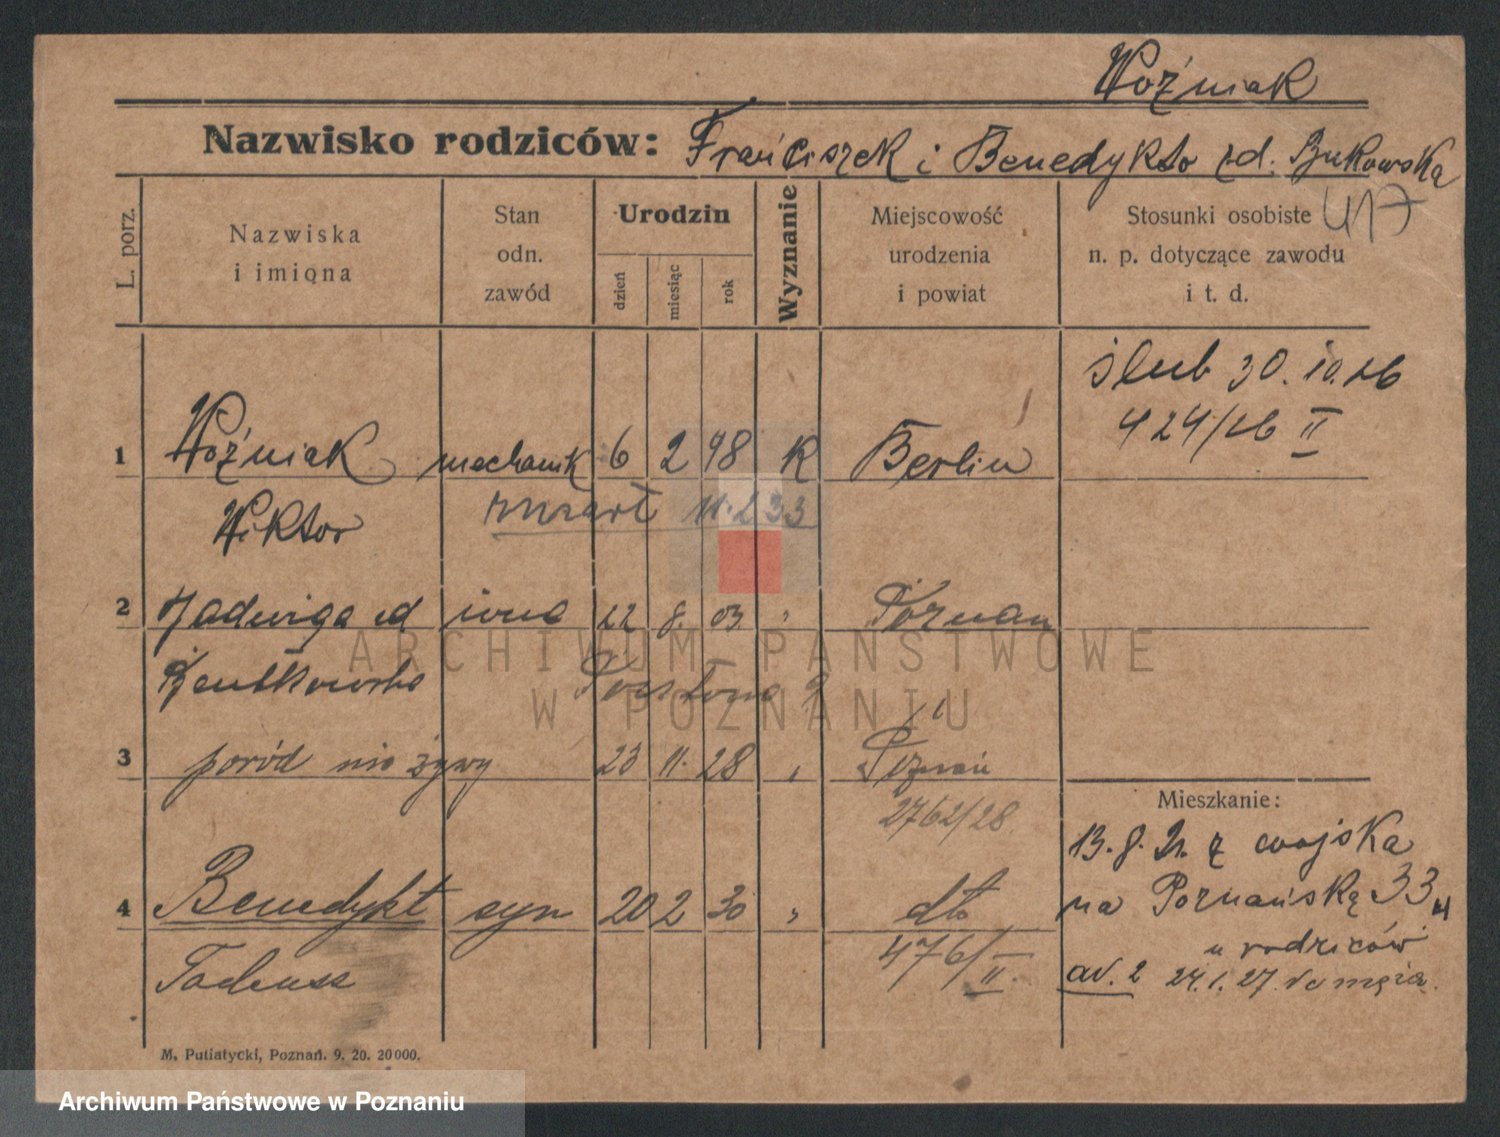 Woźniak
Nazwisko rodziców: Franciszek i Benedykta zd. Bukowska
L. porz.
Nazwiska i imiona
Stan odn. zawód
Urodzin
dzień
miesiąc
rok
Wyznanie
Miejscowość urodzenia i powiat
Stosunki osobiste n. p. dotyczące zawodu i t. d.
417
ślub 30.10.26
424/26 II
1 Woźniak mechanik 6 2 98 K Berlin
Wiktor zmarł 11.2.33
2 Jadwiga żona 22 8. 03 " Poznań
3 poród nie żywy 23 11. 28 " Poznań
2762/28.
Mieszkanie:
13.8.21. z wojska
na Poznańską 33
u rodziców
ad. 2 24.1.27. do męża.
4 Benedykt syn 20 2 30 " dto
Tadeusz 476/II.
M. Putiatycki, Poznań. 9. 20. 20000.
ARCHIWUM PAŃSTWOWE
W POZNANIU
Archiwum Państwowe w Poznaniu